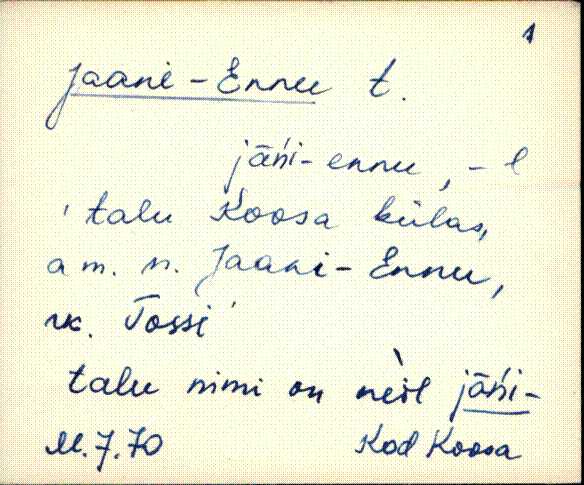 1
Jaani-Ennu t.
jāńi-ennu, -l
'talu Koosa külas,
am. n. Jaani-Ennu,
rk. Tossi'
talu nimi on nèil jāńi-
M.7.70 Kod Koosa